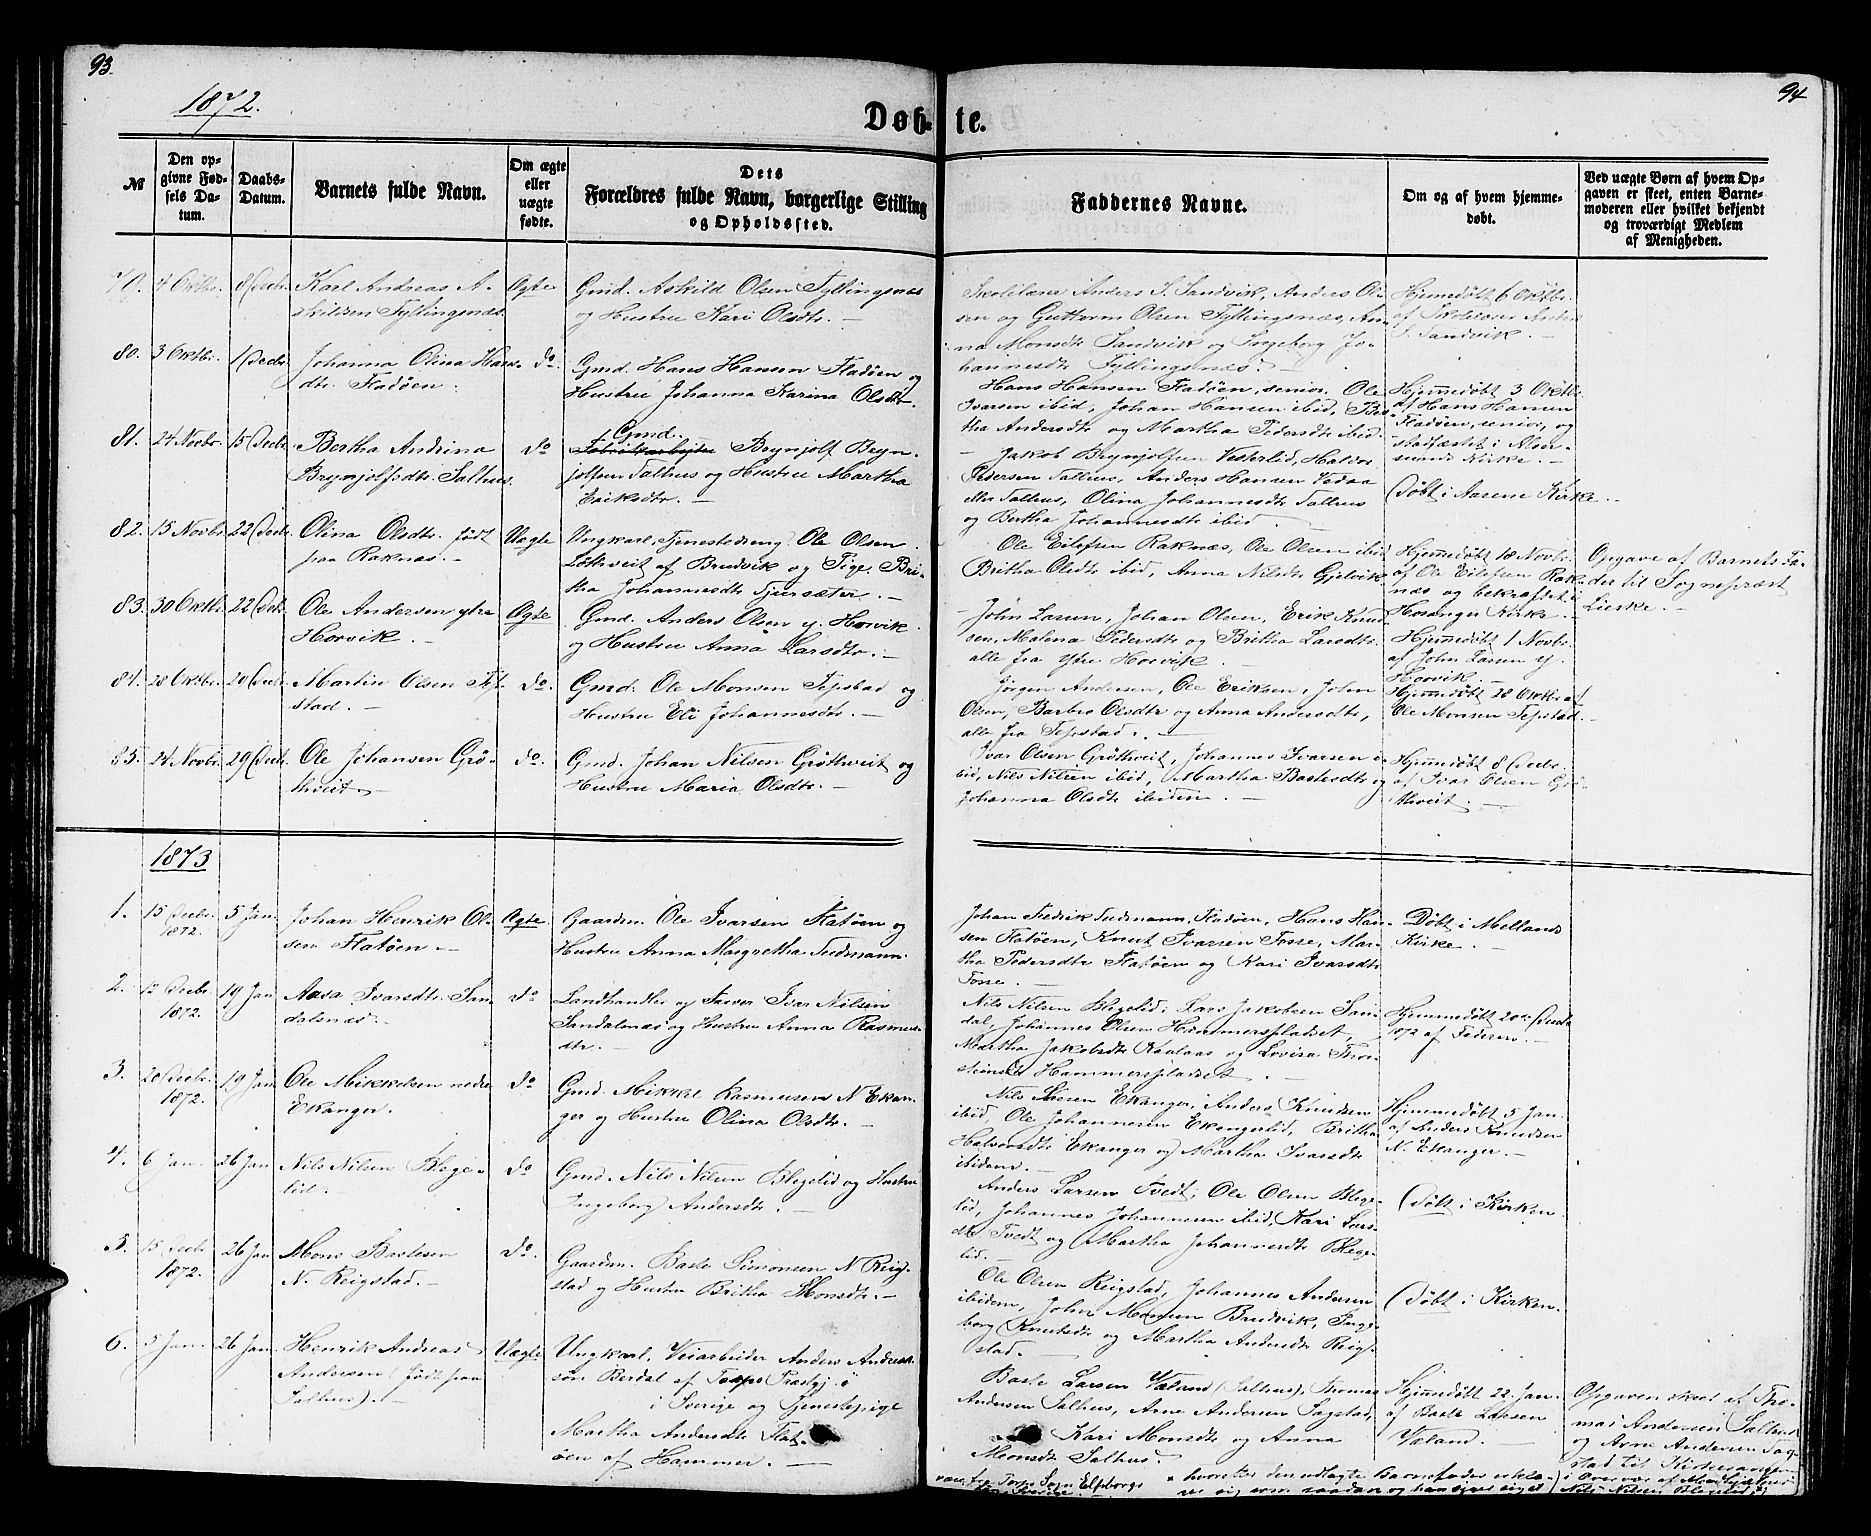 93.
94
1872.
Døb-te.
№
Den op-
givne Fød-
sels Da-
tum.
Daabs-
Datum.
Barnets fulde Navn.
Om ægte
eller
uægte
fødte.
Dets
Forældres fulde Navn, borgerlige Stilling
og Opholdssted.
Faddernes Navne.
Om og af hvem hjemme-
døbt.
Ved uægte Børn af hvem Op-
gaven er skeet, enten Barne-
moderen eller hvilket bekjendt
og troværdigt Medlem
af Menigheden.
4 Oktbr. 8 Decbr. Karl Andreas A-
skildsen Fyllingsnæs. Ægte Gmd. Askild Olsen Fyllingsnæs
og Hustru Kari Olsdtr. —
Skolelærer Anders S. Sandvik, Anders Ol-
sen og Guttorm Olsen Fyllingsnæs, An-
na Monsdtr Sandvik og Ingeborg Jo-
hannesdtr Fyllingsnæs. —
Hjemmedøbt 6 Oktbr.
af Skolelærer Anders
S. Sandvik. —
80. 3 Oktbr. 1 Decbr. Johanna Olina Hans-
dtr. Fladøen. do. Gmd. Hans Hansen Fladøen og
Hustru Johanna Karina Olsdtr.
Hans Hansen Fladøen, senior, Ole
Ivarsen ibid, Johan Hansen ibid, Ber-
tha Andersdtr og Martha Pedersdtr ibid.
Hjemmedøbt 3 Oktbr.
af Hans Hansen
Fladøen, senior, og
stadfæstet i Alver-
sunds Kirke. —
81. 24 Novbr. 15 Decbr. Bertha Andrina
Brynjolfsdtr. Salhus. do Gmd.
Fabrikarbejder Brynjolf Bryn-
jolfsen Salhus og Hustru Martha
Eriksdtr. —
Jakob Brynjolfsen Vesterlid, Haldor
Pedersen Salhus, Anders Hansen Vadaa
eller Salhus, Olina Johannesdtr Salhus
og Bertha Johannesdtr ibid.
Døbt i Aasene Kirke.
82. 15 Novbr. 22 Decbr. Olina Olsdtr. født
paa Raknæs. — Uægte Ungkarl, Tjenestedreng Ole Olsen
Lothveit af Bruvik og Pige Bri-
tha Johannesdtr Tjursæter. —
Ole Eilefsen Raknæs, Ole Olsen ibid
Britha Olsdtr ibid, Anna Nilsdtr Gjelvik
Hjemmedøbt 18 Novbr.
af Ole Eilefsen Rak-
næs og bekræftet i
Hosanger Kirke. —
Opgave af Barnets Fa-
der til Sognepræst
Lierke. —
83. 30 Oktbr. 22 Decbr. Ole Andersen ytre
Horvik. — Ægte Gmd. Anders Olsen y. Horvik
og Hustru Anna Larsdtr. —
John Larsen, Johan Olsen, Erik Knud-
sen, Malena Pedersdtr og Britha Larsdtr
alle fra Ytre Horvik. —
Hjemmedøbt 1 Novbr.
af John Larsen y.
Horvik. —
84. 28 Oktbr. 26 Decbr. Martin Olsen Tep-
stad. — do. Gmd. Ole Monsen Tepstad og
Hustru Eli Johannesdtr. —
Jørgen Andersen, Ole Eriksen, John
Olsen, Barbro Olsdtr og Anna Andersdtr,
alle fra Tepstad. —
Hjemmedøbt 28 Oktbr af
Ole Monsen Tepstad.
85. 24 Novbr. 29 Decbr. Ole Johansen Grø-
thveit. do. Gmd. Johan Nilsen Grøthveit og
Hustru Maria Olsdtr. —
Ivar Olsen Grøthveit, Johannes Ivarsen i-
bid, Nils Nilsen ibid, Martha Bastesdtr og
Johanna Olsdtr ibidem. —
Hjemmedøbt 8 Decbr.
af Ivar Olsen Grø-
thveit. —
1873
1. 15 Decbr. 1872. 5 Jan. Johan Henrik Ol-
sen Flatøen — Ægte. Gaardm. Ole Ivarsen Flatøen og
Hustru Anna Margretha Tuchmann.
Johan Fredrik Tuchmann, Fladøen, Hans Han-
sen Flatøen, Knut Ivarsen Fosse, Mar-
tha Pedersdtr Flatøen og Kari Ivarsdtr
Fosse. —
Døbt i Mellands
Kirke. —
2. 12 Decbr. 1872. 19 Jan Aasa Ivarsdtr. San-
dalsnæs. do Landhandler og Farver Ivar Nilsen
Sandalsnæs og Hustru Anna Rasmus-
dtr. —
Nils Nilsen Blegelid, Lars Jakobsen San-
dal, Johannes Olsen Hammerspladset,
Martha Jakobsdtr Kaalaas og Lovisa Thor-
Hammerspladset. —
Hjemmedøbt 20de Decbr
1872 af Faderen. —
3. 20 Decbr. 1872. 19 Jan Ole Mikkelsen nedre
Ekanger. do Gmd. Mikkel Rasmusen N Ekan-
ger og Hustru Olina Olsdtr. —
Nils Larsen Ekanger, Anders Knudsen
ibid. Ole Johannesen Ekangerlid, Britha
Halvorsdtr Ekanger og Martha Ivarsdtr
ibidem. —
Hjemmedøbt 5 Jan.
af Anders Knudsen
N. Ekanger. —
4. 6 Jan. 26 Jan Nils Nilsen Blege-
lid. — do Gmd. Nils Nilsen Blegelid og Hustru
Ingeborg Andersdtr. —
Anders Larsen Tvedt, Ole Olsen Blege-
lid, Johannes Johannesen ibid, Kari Lars-
dtr Tvedt og Martha Johannesdtr Blege-
lid. —
Døbt i Kirken
5. 15 Decbr 1872. 26 Jan Mons Bastesen
N. Reigstad. — do. Gaardm. Baste Simonsen N Reig-
stad og Hustru Britha Monsdtr. —
Ole Olsen Reigstad, Johannes Andersen
ibidem, John Monsen Brudvik, Inge-
borg Knutsdtr og Martha Andersdtr Reig-
stad. —
Døbt i Kirken.
6. 5 Jan. 26 Jan Henrik Andreas
Andersen (født paa
Salhus). — Uægte Ungkarl, Veiarbeider Anders Andreas-
sen Berdal af Præstgj. i
i Sverige og Tjenestepige
Martha Andersdtr Flat-
øen af Hammer. —
Baste Larsen Væland (Salhus), Thomas
Andersen Salhus, Arne Andersen Sagstad,
Kari Monsdtr og Anna
Monsdtr Salhus.
Hjemmedøbt 22 Jan.
af Baste Larsen
Væland. —
Opgaven skeet af Tho-
mas Andersen Salhus
og Arne Andersen Sag-
stad til Kirkesangeren